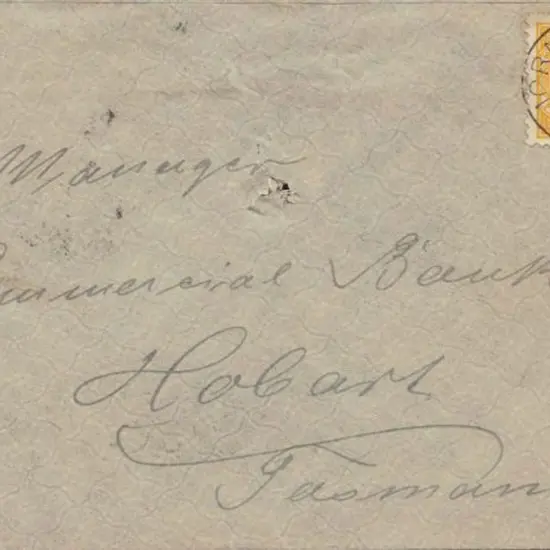 Manager
ommercial Bank
Hobart
Tasman